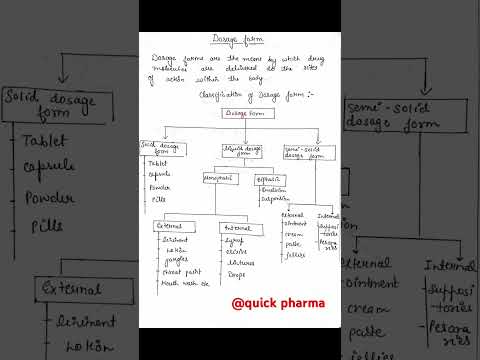 Dosage form
Dosage forms are the means by which drug
molecules are delivered to the sites
of action within the body.
Classification of Dosage form :-
Dosage Form
Solid dosage form
Tablet
Capsule
Powder
Pills
Liquid dosage form
Monophasic
External
Liniment
Lotion
gargles
throat paint
Mouth wash etc
Internal
Syrup
elixirs
Drops
Biphasic
Emulsion
Suspension
Semi-solid dosage form
External
ointment
cream
paste
jellies
Internal
Suppositories
@quick pharma
Solid dosage
form
Tablet
Capsule
Powder
Pills
External
Liniment
Lotion
semi-solid
dosage form
External
ointment
cream
paste
Internal
Supposi
tories